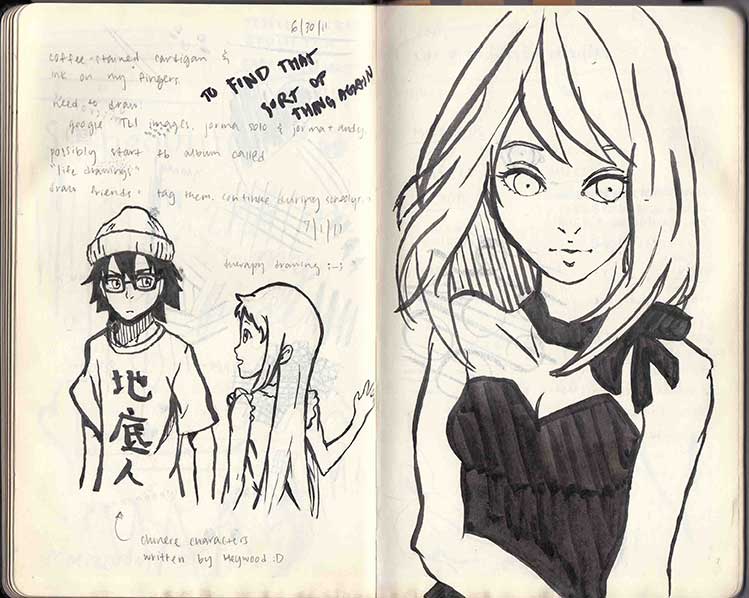 6/30/11
coffee-stained cardigan &
ink on my fingers.
TO FIND THAT
SORT OF
THING AGAIN
need to draw:
google TLI images, jorma solo & jorma + andy.
possibly start fb album called
"life drawings"
draw friends & tag them. continue during
7/1/11
therapy drawing :-;
地
底
人
chinese characters
written by Heywood :D